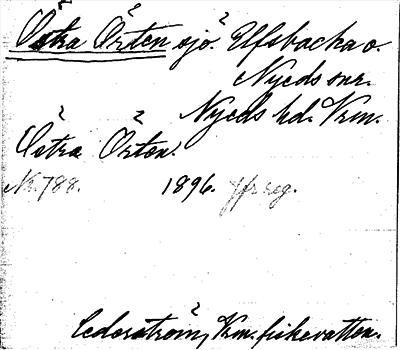 Östra Örten sjö. Elfsbacka o.
Nyeds snr.
Nyeds hd. Vrm.
Östra Örten.
Nr. 788. 1896. jfr reg.
Cederström, Vrm. fiskevatten.